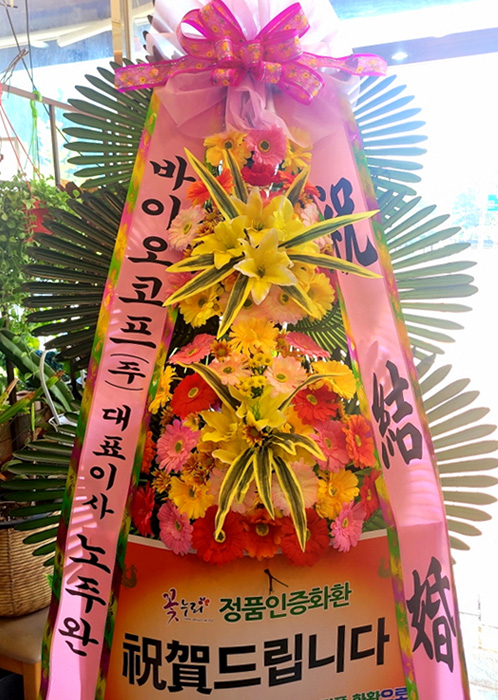 바이오코프(주) 대표이사 노주완
祝 結 婚
꽃누리
정품인증화환
祝賀드립니다
화환으로